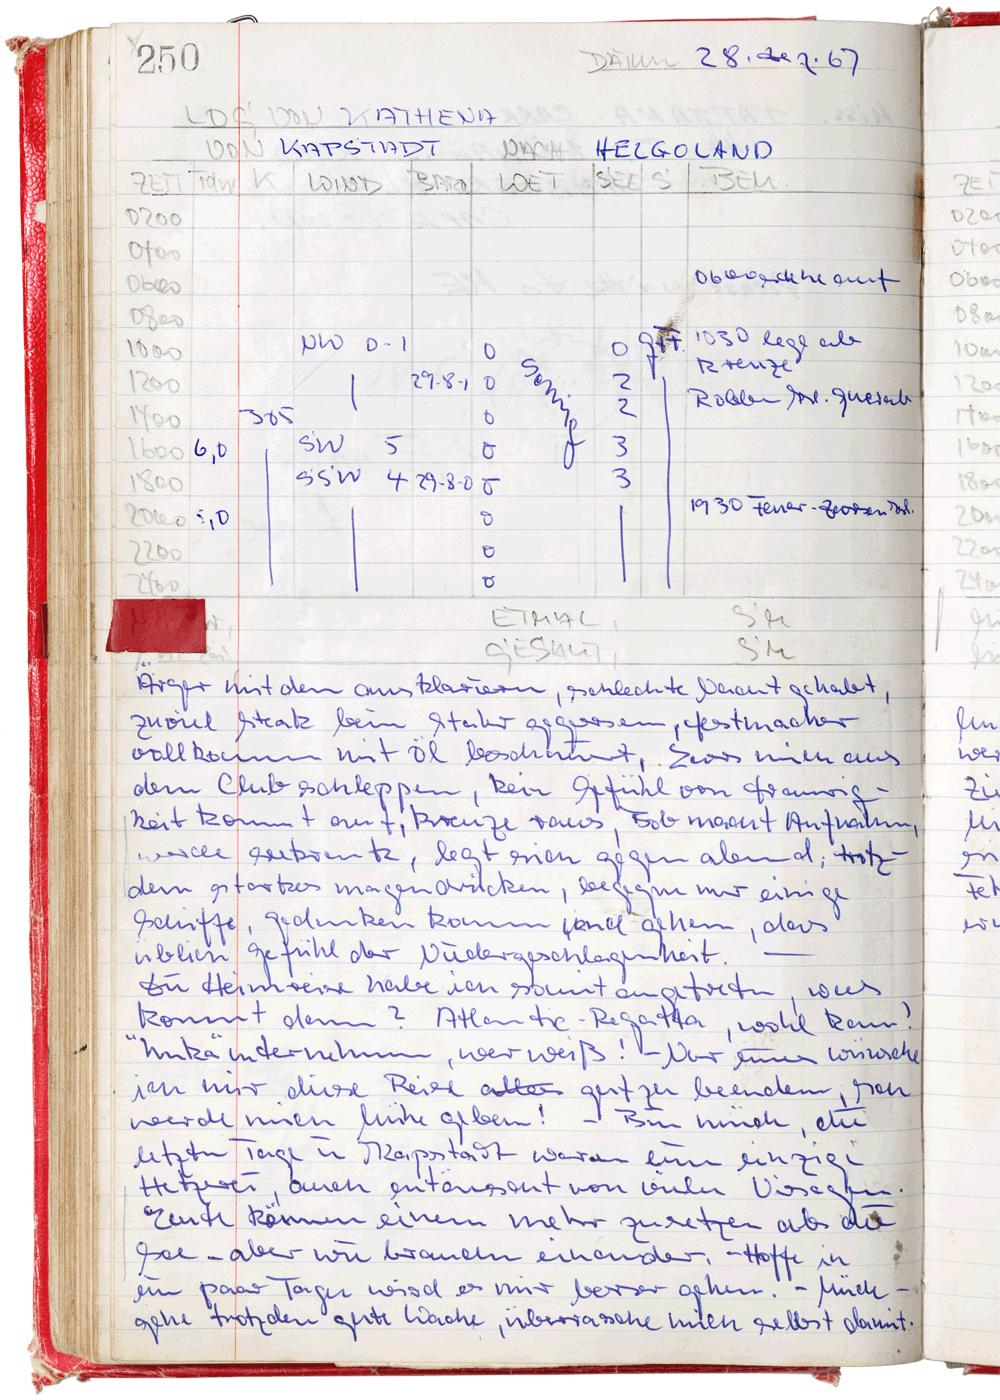 250
DATUM 28. dez. 67
LOG VON KATHENA
VON KAPSTADT NACH HELGOLAND
ZEIT rdw K WIND BARO WET SEE S BEM.
0200
0400
0600 0600 stehe auf
0800
1000 NW 0-1 0 0 1030 lege ab
Kreuze
1200 29-8-1 0 sonnig 2
1400 305 0 2 Robben Isl. querab
1600 6,0 SW 5 0 3
1800 SSW 4 29-8-0 0 3
2000 5,0 0 1930 Feuer
2200 0
2400 0
ETMAL, SM
GESAMT, SM
Ärger mit dem ausklarieren, schlechte Nacht gehabt,
zuviel Steak beim gegessen, Festmacher
vollkommen mit Öl beschmiert, lass mich aus
dem Club schleppen, kein Gefühl von traurig-
keit kommt auf, kreuze raus, Bob macht Aufnahmen,
werde seekrank, legt sich gegen abend, trotz-
dem starkes magendrücken, begegne nur einige
Schiffe, gedanken kommen und gehen, das
üblich Gefühl der Niedergeschlagenheit. —
Die Heimreise habe ich somit angetreten, was
kommt dann? Atlantic-Regatta, wohl kaum!
unternehmen, wer weiß! - Nur eines wünsche
ich mir diese Reise alles gut zu beenden, ich
werde mich mühe geben! - Bin müde, die
letzten Tage in Kapstadt waren eine einzige
Hetzerei, auch enttäuscht von vielen
Leute können einem mehr zusetzen als die
See - aber wir brauchen einander. - Hoffe in
ein paar Tagen wird es mir besser gehen. - Müde -
gehe trotzdem gute Wache, überrasche mich selbst damit.